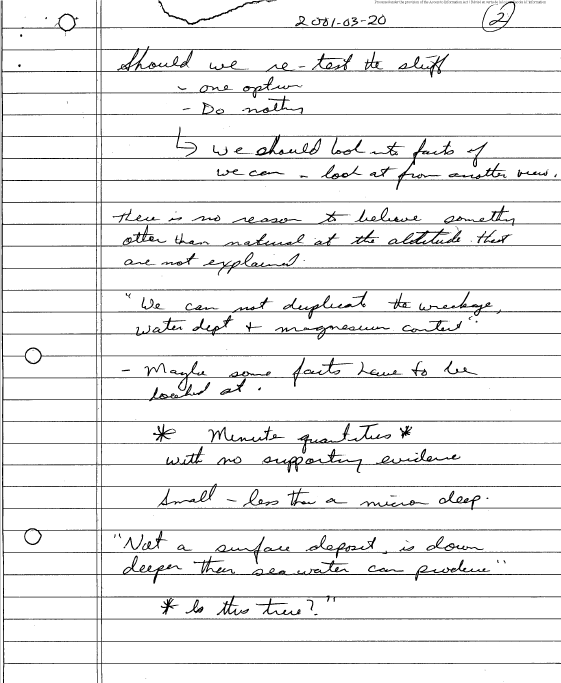 Processed under the provisions of the Access to Information Act /
2001-03-20
2
Should we re-test the stuff
- one option
- Do nothing
we should look into facts if
we can - look at from another view.
There is no reason to believe something
other than natural at the altitude that
are not explained.
"We can not duplicate the wreckage,
water dept + magnesium content".
- Maybe some facts have to be
looked at.
* Minute quantities *
with no supporting evidence
Small - less than a micron deep.
"Not a surface deposit, is down
deeper then sea water can produce"
* Is this true?"